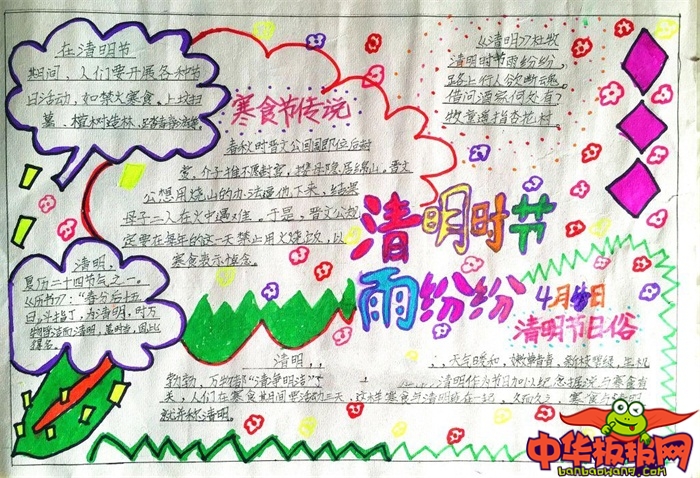 在清明节
期间，人们要开展各种节
日活动，如禁火寒食、上坟扫
墓、植树造林、
寒食节传说
春秋时晋文公回国即位后封
赏，介子推不愿封赏，携母隐居绵山，晋文
公想用烧山的办法逼他下来，结果
母子二人在火中遇难。于是，晋文公规
定要在每年的这一天禁止用火烧饭，以
寒食表示悼念。
《清明》杜牧
清明时节雨纷纷，
路上行人欲断魂。
借问酒家何处有？
牧童遥指杏花村
清明时节
雨纷纷
4月 日
清明节日俗
清明，
夏历二十四节气之一。
《历书》："春分后十五
日，斗指丁，为清明，时万
物
得名。
清明，
，天气暖和，
勃勃，万物都"清净明洁"
清明作为节日
关，人们在寒食期间要活动三天，
就并称清明。
中华板报网
banbaowang.com